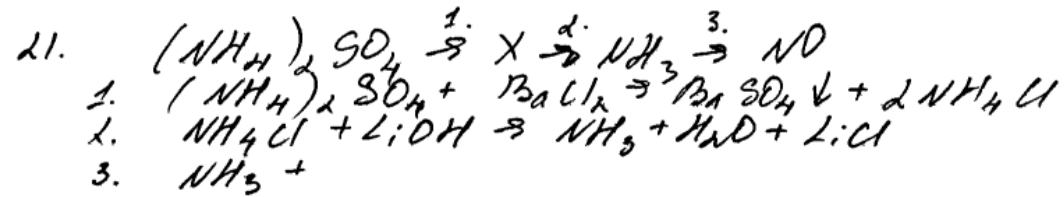 21. (NH₄)₂SO₄ →1. X →2. NH₃ →3. NO
1. (NH₄)₂SO₄ + BaCl₂ → BaSO₄↓ + 2NH₄Cl
2. NH₄Cl + LiOH → NH₃ + H₂O + LiCl
3. NH₃ +